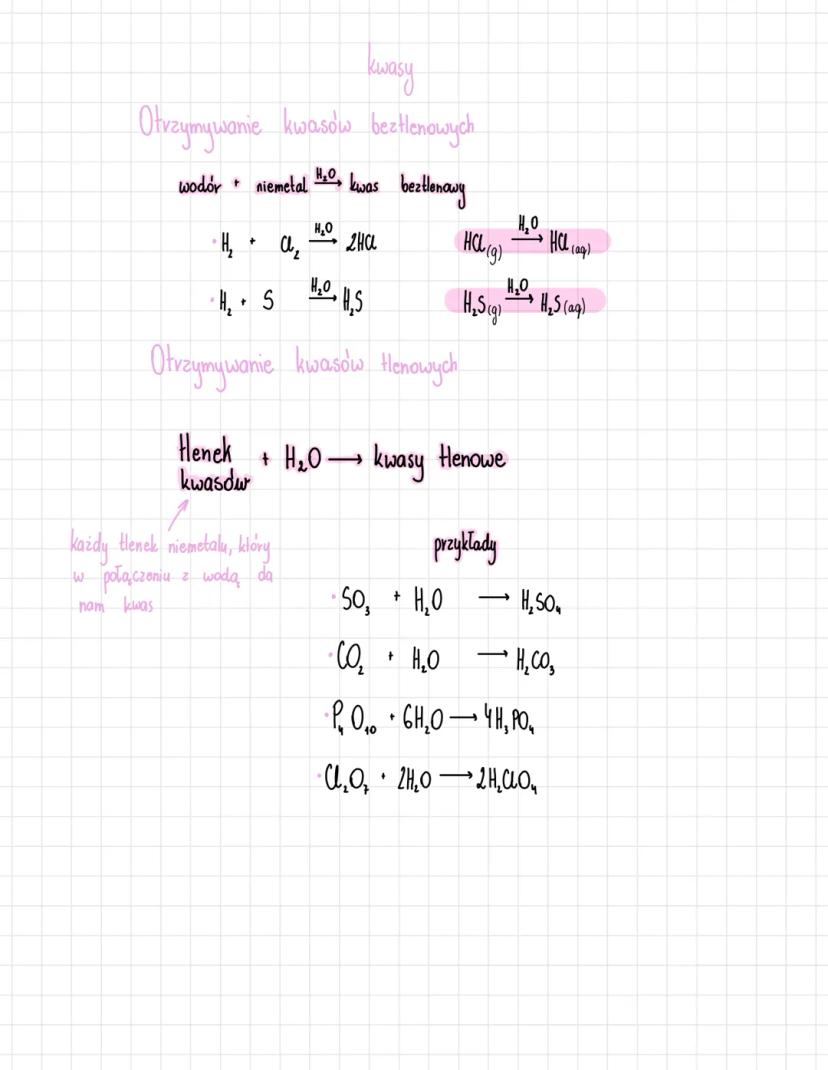 kwasy
Otrzymywanie kwasów beztlenowych
wodór + niemetal H₂O→ kwas beztlenowy
· H₂ + Cl₂ H₂O→ 2HCl HCl(g) H₂O→ HCl(aq)
· H₂ + S H₂O→ H₂S H₂S(g) H₂O→ H₂S(aq)
Otrzymywanie kwasów tlenowych
tlenek kwasów + H₂O → kwasy tlenowe
każdy tlenek niemetalu, który
w połączeniu z wodą da
nam kwas
przykłady
· SO₃ + H₂O → H₂SO₄
· CO₂ + H₂O → H₂CO₃
· P₄O₁₀ + 6H₂O → 4H₃PO₄
· Cl₂O₇ + 2H₂O → 2H₂ClO₄